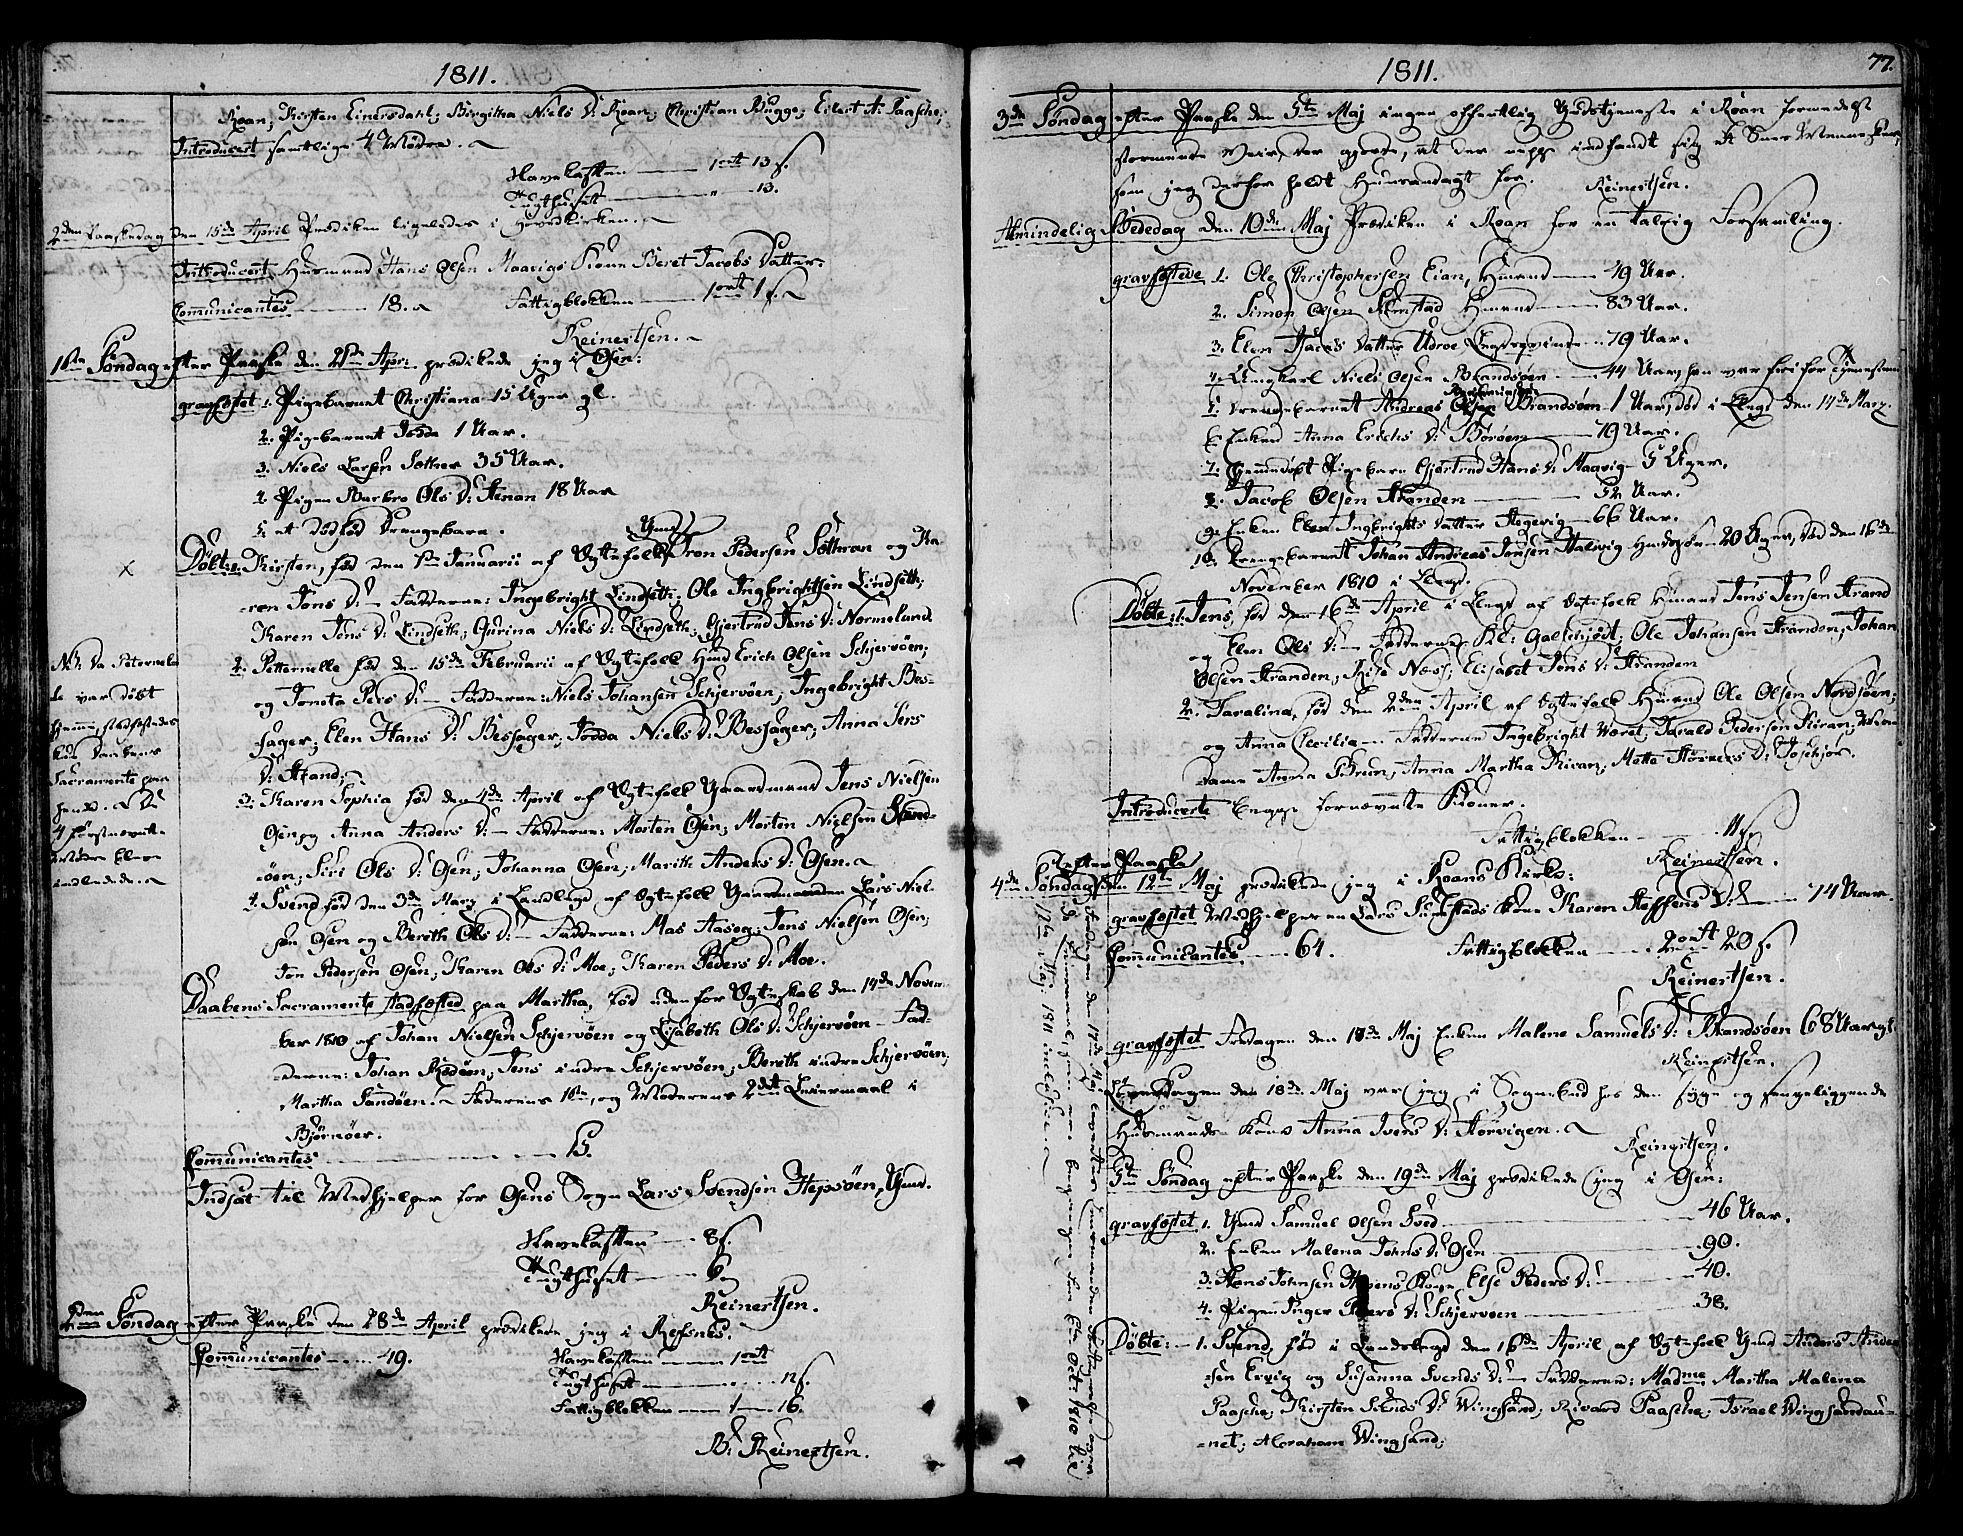 1811.
Roan; Kirsten Einersdahl; Birgitha Niels D: Roan; Christian Bugge; Eilert A: Paasche;
Introducert samtlige 4 Mødre.
Havekassen 1 ort 13 s.
Tugthuset " 13.
2den Paaskedag den 15de April Prædiken ligeledes i Hovedkirken.
Introducert Huusmand Hans Olsen Maavigs Kone Beret Jacobs Datter.
Communicantes 18. Fattigblokken 1 ort 1 s.
Reinertsen.
1ste Søndag efter Paaske den 21de Apr: prædikede jeg i Osen:
gravfæstet 1. Pigebarnet Christiana 15 Uger gl.
2. Pigebarnet Jodda 1 Aar.
3. Niels Larsen Sother 35 Aar.
4. Pigen Barbro Ols D: Stenan 18 Aar
5. et dødfød Drengebarn.
x
Døbt: 1. Kirsten, fød den 1ste Januarii af Ægtefolk Gmd Tron Pedersen Søthran og Ka-
ren Jons D: — Fadderne: Ingebright Lindseth; Ole Ingbrightsen Lindseth;
Karen Jons D: Lindseth; Gurina Niels D: Lindseth; Gjertrud Jens D: Normeland
2. Petternelle fød den 15de Februarii af Ægtefolk Hmd Erich Olsen Schjervøen;
og Joneta Pers D: — Fadderne: Niels Johansen Schjervøen; Ingebright Bes-
sager; Elen Hans D: Bessager; Jodda Niels D: Bessager; Anna Jens
D: Strand;
NB: da Peternel-
le var døbt
hjemme, stadfæstedes
kun Daabens
Sacramente paa
hende.
4 førstnævnte
Mødre bleve
indledede.
3. Karen Sophia fød den 4de April af Ægtefolk Gaardmand Jens Nielsen
Osen og Anna Anders D: — Fadderne: Morten Osen; Morten Nielsen Sand-
øen; Siri Ols D: Osen; Johanna Osen; Marith Anders D: Osen.
4. Svend fød den 3de Marz i Landlægd af Ægtefolk Gaardmanden Lars Niel-
sen Osen og Bereth Ols D: — Fadderne: Mas Aaseg; Jens Nielsen Osen;
Jon Pedersen Osen; Karen Ols D: Moe; Karen Peders D: Moe.
Daabens Sacramente stadfæsted paa Martha, fød uden for Ægteskab den 14de Novem-
ber 1810 af Johan Nielsen Schjervøen og Elisabeth Ols D: Schjervøen — Fad-
derne: Johan Rødøen; Jens indre Schjervøen; Bereth indre Schjervøen;
Martha Sandøen. Faderens 1ste, og Moderens 2det Leiermaal i
Bjørnøer.
Communicantes 15.
Indsat til Medhjelper for Osens Sogn Lars Svendsen Hepsøen, Gmd.
Havekassen 8 s.
Tugthuset 6.
Reinertsen.
2den Søndag efter Paaske den 28de April prædikede jeg i Refsnes.
Communicantes 49. Havekassen 1 ort
Tugthuset 12 s.
Fattigblokken 1 — 16.
B: Reinertsen.
1811. 77.
3de Søndag efter Paaske den 5te Maj ingen offentlig Gudstjeneste i Roan formedelst
stormende Veir, der gjorde, at der neppe indfandt sig Mennesker,
som jeg derfor holdt Huusandagt for. Reinertsen.
Almindelig Bededag den 10de Maj Prædiken i Roan for en talrig Forsamling.
gravfæstede 1. Ole Christophersen Eian, Hmand 49 Aar.
2. Simon Olsen Sumstad Hmand 83 Aar.
3. Elen Jacobs Datter Udroe 79 Aar.
4. Ungkarl Niels Olsen Brandsøen 44 Aar, han var fri for Tjenesten
5. Drengebarnet Andreas Olsen Brandsøen 1 Aar, død i Lægd den 14de Marz.
6. Enken Anna Erichs D: Børøen 79 Aar.
7. Hjemmedøbt Pigebarn Gjertrud Hans D: Maavig 5 Uger.
8. Jacob Olsen Stranden 52 Aar.
9. Enken Elen Ingbrights Datter Hegevig 66 Aar.
10. Drengebarnet Johan Andreas Jensen Halvig 20 Uger, død den 16de
November 1810 i Lægd.
Døbte: 1. Jens, fød den 16de April i Lægd af Ægtefolk Hmand Jens Jensen Strand
og Elen Ols D: — Fadderne: Kl: Galtesjødt; Ole Johansen Stranden; Johan
Olsen Stranden; Næss; Elisabet Jens D: Stranden
2. Taralina, fød den 2den April af Ægtefolk Hmand Ole Olsen Nordsøen;
og Anna Cecilia — Fadderne Ingebright Været; Harald Pedersen Kiran; Ma-
dame Anna Brun; Anna Martha Kiran; Mette D: Hoschjør.
Introducerte begge fornævnte Koner.
Fattigblokken 11 s.
Reinertsen.
4de Søndag efter Paaske den 12te Maj prædikede jeg i Roans Kirke:
gravfæstet Medhjelperen Lars Sumstads Kone Karen Steffens D: 74 Aar.
Communicantes 64. Fattigblokken 2 ort 20 s.
Reinertsen.
gravfæstet Fredagen den 17de Maj Enken Malene Samuels D: Brandsøen 68 Aar gl.
Reinertsen.
Løverdagen den 18de Maj var jeg i Sognebud hos den syge og sengeliggende
Huusmands Kone Anna Ivers D: Hørvigen.
Reinertsen.
5te Søndag efter Paaske den 19de Maj prædikede jeg i Osen:
gravfæstet 1. Gmd Samuel Olsen Sved 46 Aar.
2. Enken Malena Johns D: Osen 90.
3. Hans Johnsen Kone Else Peders D: 40.
4. Pigen Inger Peders D: Schjervøen 38.
Døbte: — 1. Svend, fød i Landlægd den 16de April af Ægtefolk Gmd Anders Ander-
sen Ervig og Susanna Svends D: — Fadderne: Madme Martha Malena
Paasche; Kirsten Svends D: Wingsand; Rivard Paasche; Israel Wingsandau-
net; Abraham Wingsand;